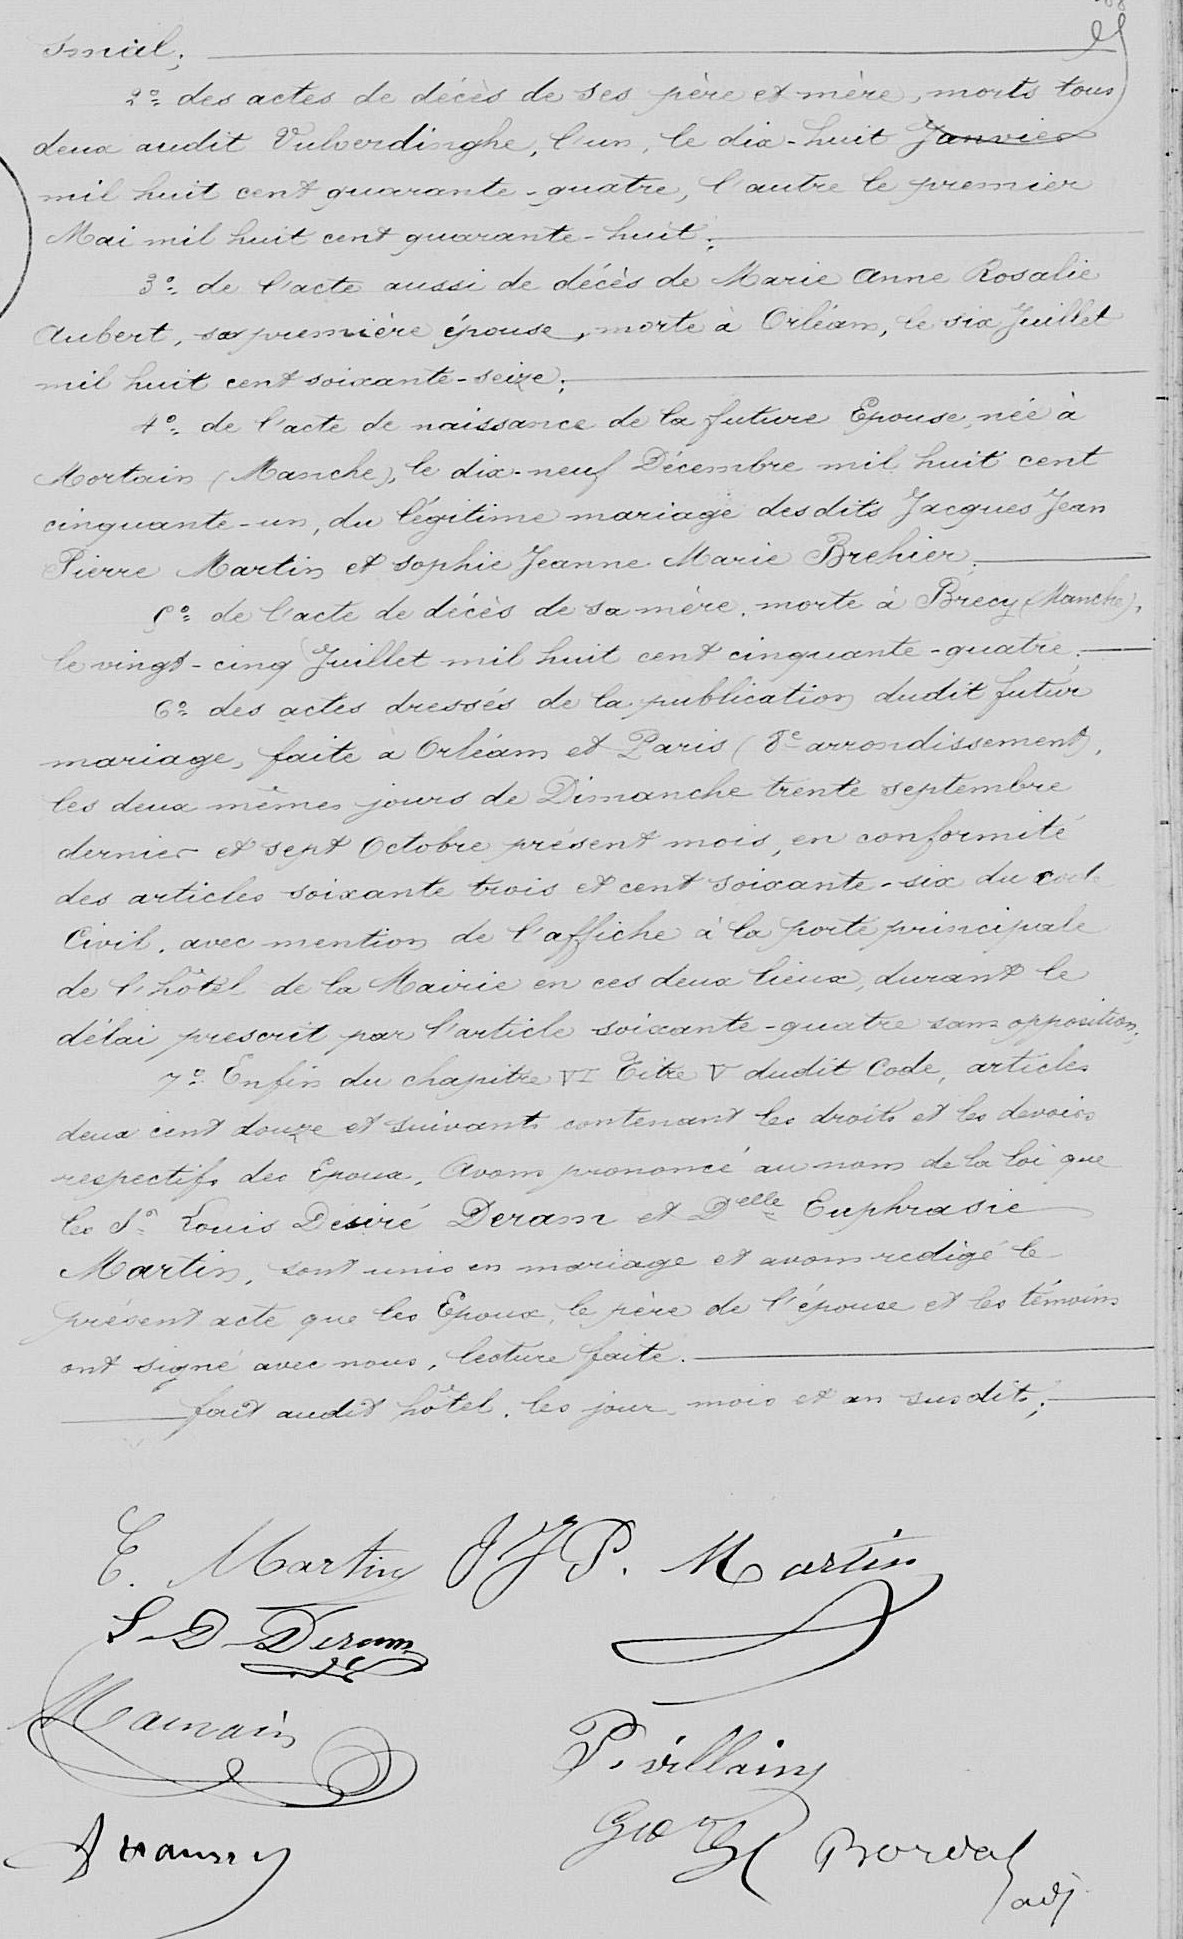 2º des actes de décès de ses père et mère, morts tous
deux audit Vulverdinghe, l'un, le dix-huit Janvier
mil huit cent quarante-quatre, l'autre le premier
Mai mil huit cent quarante-huit;
3º de l'acte aussi de décès de Marie Anne Rosalie
Aubert, sa première épouse, morte à Orléans, le six Juillet
mil huit cent soixante-seize;
4º de l'acte de naissance de la future Epouse, née à
Mortain (Manche), le dix-neuf Décembre mil huit cent
cinquante-un, du légitime mariage desdits Jacques Jean
Pierre Martin et Sophie Jeanne Marie Brehier;
5º de l'acte de décès de sa mère, morte à Brecy (Manche),
le vingt-cinq Juillet mil huit cent cinquante-quatre;
6º des actes dressés de la publication dudit futur
mariage, faite à Orléans et Paris (8e arrondissement),
les deux mêmes jours de Dimanche trente septembre
dernier et sept Octobre présent mois, en conformité
des articles soixante trois et cent soixante-six du code
Civil, avec mention de l'affiche à la porte principale
de l'hôtel de la Mairie en ces deux lieux, durant le
délai prescrit par l'article soixante-quatre sans opposition,
7º Enfin du chapitre VI Titre V dudit Code, articles
deux cent douze et suivants contenant les droits et les devoirs
respectifs des Epoux, Avons prononcé au nom de la loi que
les Sr Louis Désiré Deram et Delle Euphrasie
Martin, sont unis en mariage et avons redigé le
présent acte que les Epoux, le père de l'épouse et les témoins
ont signé avec nous, lecture faite.
fait audit hôtel, les jour, mois et an susdits;
E. Martin JJP. Martin
L-D-Deram
Mamain
P. Villain
adj